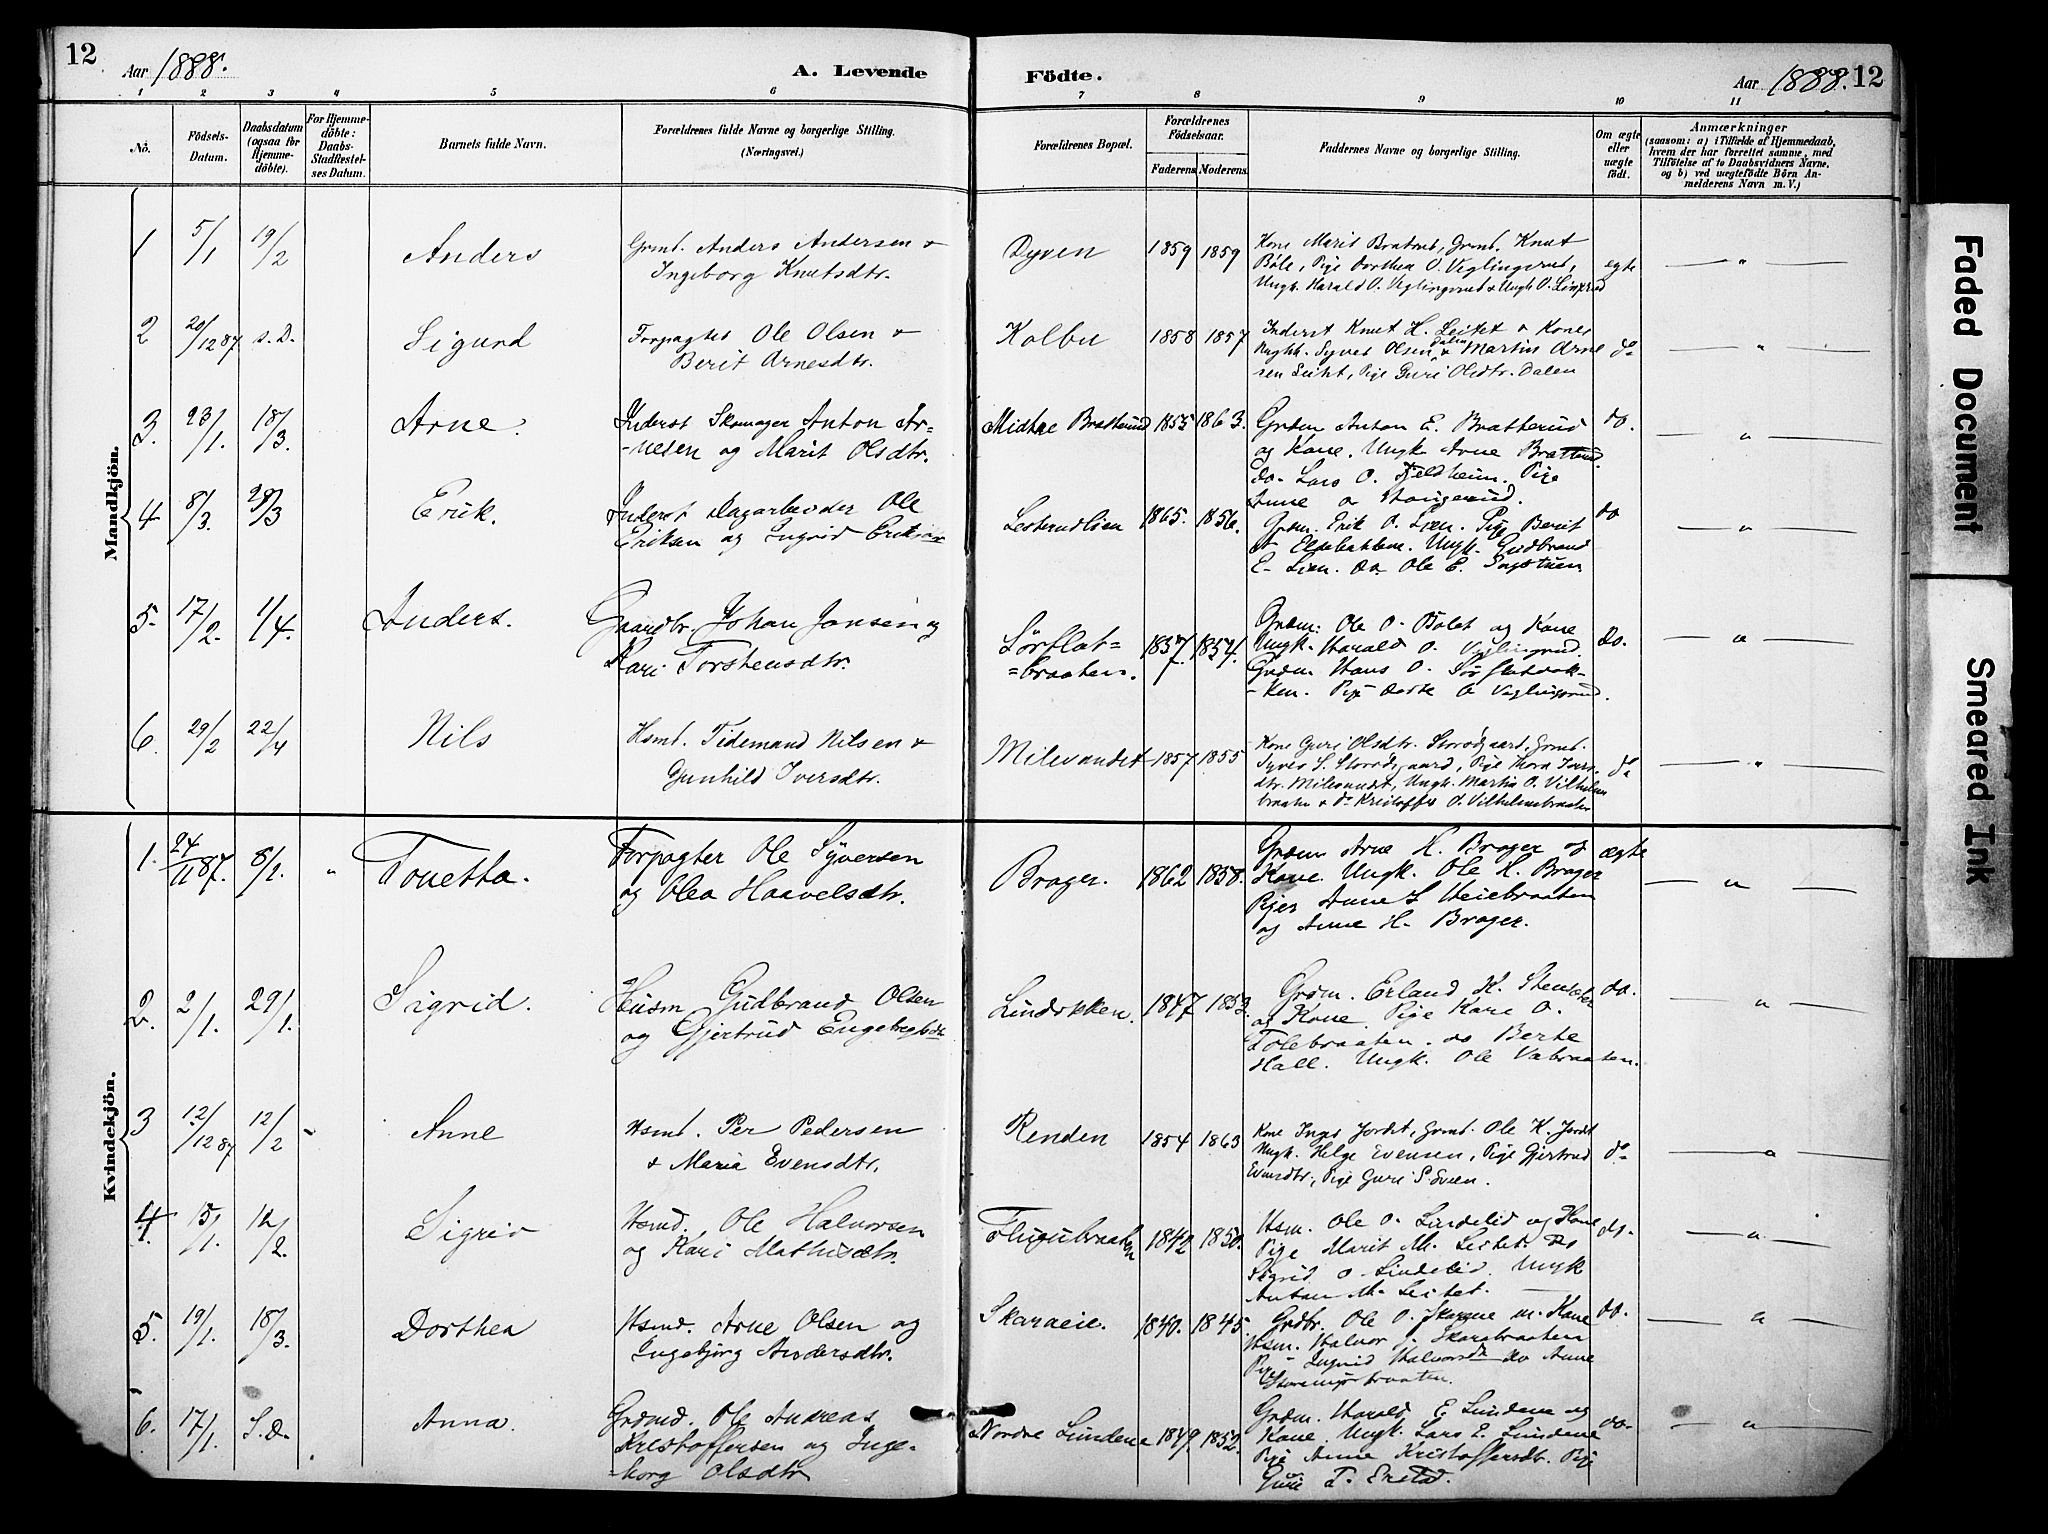 12
Aar 1888.
A. Levende
Födte.
Aar 1888.
12
1 2 3 4 5 6 7 8 9 10 11
No.
Födsels-
Datum.
Daabsdatum
(ogsaa for
Hjemme-
döbte).
For Hjemme-
döbte:
Daabs-
Stadfæstel-
ses Datum.
Barnets fulde Navn.
Forældrenes fulde Navne og borgerlige Stilling.
(Næringsvei.)
Forældrenes Bopæl.
Forældrenes
Födselsaar.
Faderens
Moderens
Faddernes Navne og borgerlige Stilling.
Om ægte
eller
uægte
födt.
Anmærkninger
(saasom: a) i Tilfælde af Hjemmedaab,
hvem der har forrettet samme, med
Tilföielse af to Daabsvidners Navne,
og b) ved uægtefödte Börn An-
melderens Navn m. V.)
Mandkjön.
1 5/1 19/2 Anders
Grmd. Anders Andersen &
Ingeborg Knutsdtr.
Dyven 1859 1859
Kone Marit Bratrud, Grmd. Knut
Böle, Pige Dorthea O. Veglingsrud,
Ungk. Harald O. Veglingsrud & Ungk O.
egte
2 20/12 87 s.D. Sigurd
Forpagter Ole Olsen &
Berit Arnesdtr.
Kolbu 1858 1857
Inderst Knut H. Leitet & Kone,
Ungk. Syver Olsen Dalen & Martin Arne
sen Leitet, Pige Guri Olsdtr. Dalen
do
3. 23/1. 18/3. Arne.
Inderst Skomager Anton Ar-
-nesen og Marit Olsdtr.
Midtre Bratterud 1855 1863.
Grdm Anton E. Bratterud
og Kone. Ungk. Arne Bratterud.
do. Lars O. Fjeldheim. Pige
Anne O Haugerud.
do.
4 8/3. 28/3 Erik.
Inderst Dagarbeider Ole
Eriksen og Ingrid Eriksdtr
Lesterudlien 1865. 1856.
Grdm. Erik O. Lien. Pige Berit
Ungk. Gudbrand
E. Lien. do Ole E. Engstuen
do
5. 17/2. 1/4. Anders.
Gaardbr. Johan Jansen og
Kari Torstensdtr.
Sörflat-
-braaten. 1857. 1854.
Grdm. Ole O. Bölet og Kone
Ungk. Harald O. Veglingrud.
Grdm Hans O. Sörflatbak-
-ken. Pige Dorte O Veglingsrud.
Do.
6. 29/2 22/4 Nils
Hsmd. Tidemand Nilsen &
Gunhild Iversdtr.
Milevandet 1857 1855
Kone Guri Olsdtr. Storödgaard, Grmd.
Syver S. Storödgaard, Pige Thora Ivers-
dtr. Milevandet, Ungk. Martin O. Vilhelms
braaten & do Kristoffer O. Vilhelmsbraaten
do
Kvindekjön.
1. 24/11 87. 8/1. Tonetta.
Forpagter Ole Syversen
og Olea Haavelsdtr.
Brager. 1862 1858.
Grdm Arne H. Brager og
Kone. Ungk. Ole H. Brager
Piger Anne S Heiebraaten
og Anne H. Brager.
ægte
2. 2/1. 29/1. Sigrid.
Husm Gudbrand Olsen
og Gjertrud Engebretsdtr
Lindokken. 1847 1853.
Grdm. Erland K.
og Kone. Pige Kari O.
Tolebraaten. do Berte
Hall. Ungk. Ole Vabraaten.
do.
3 12/12 87 12/2 Anne
Hsmd. Per Pedersen
& Maria Evensdtr.
Renden 1854 1863
Kone Inger Jordet, Grmd. Ole K. Jordet
Ungk. Helge Evensen, Pige Gjertrud
Evensdtr., Pige Guri S.
do
4. 15/1. 12/2. Sigrid
Hsmd. Ole Halvorsen
og Kari Mathisdtr.
Flugubraaten 1842 1850.
Hsm. Ole O. Lindelid og Kone
Pige Marit M. Leitet. Do
Sigrid O. Lindelid. Ungk
Anton M. Leitet.
do.
5. 19/1. 18/3. Dorthea
Hsmd. Arne Olsen og
Ingebjörg Andersdtr.
Skaraeie. 1840. 1845.
Grdbr. Ole O. Skarane m. Kone
Hsm. Halvor J. Skarabraaten
Pige Ingrid Halvorsdtr do Anne
do.
6. 17/1. S.D. Anna.
Grdmd. Ole Andreas
Kristoffersen og Inge-
-borg Olsdtr
Nordre Lundene 1849. 1852.
Grdm. Harald E Lundene og
Kone. Ungk. Lars E. Lundene
Pige Anne Kristoffersdtr. Pige
Guri T. Enstad.
do.
Faded Document
Smeared Ink